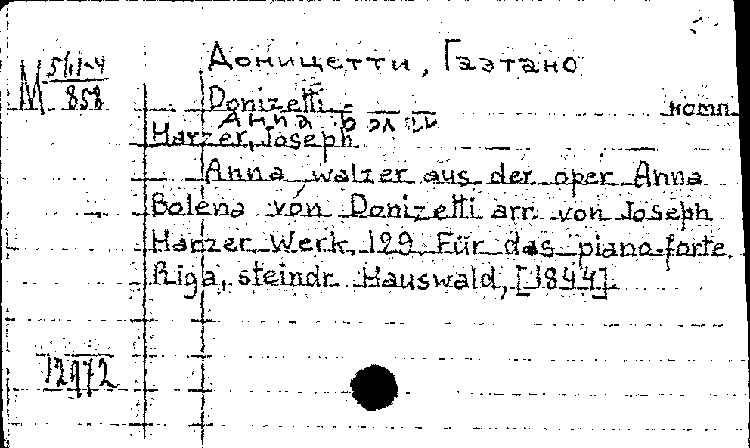 Доницетти, Гаэтано
М 561-4
858
Donizetti
комп.
Анна
Harzer, Joseph
Anna walzer aus der oper Anna
Bolena von Donizetti arr. von Joseph
Harzer Werk. 129. Für das piano-forte.
Riga, steindr. Hauswald, [1844].
12972